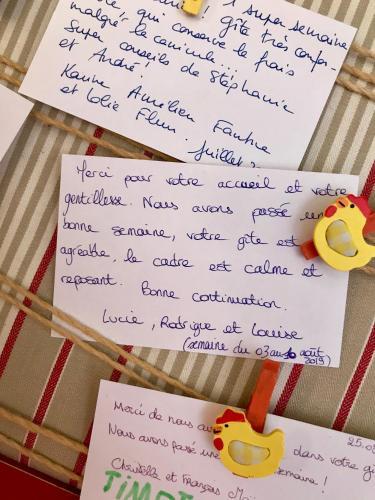 super semaine
qui conserve le frais gîte très confor-
malgré la canicule...
super conseils de Stéphanie
et André!
Karine Aurélien Fantine
et Lolie Flum. Juillet
Merci pour votre accueil et votre
gentillesse. Nous avons passé une
bonne semaine, votre gîte est
agréable, le cadre est calme et
reposant. Bonne continuation.
Lucie, Rodrigue et Louise
(semaine du 03 au 10 août
2019)
Merci de nous 25.0
Nous avons passé une dans votre gî
semaine !
Christelle et François
TIM